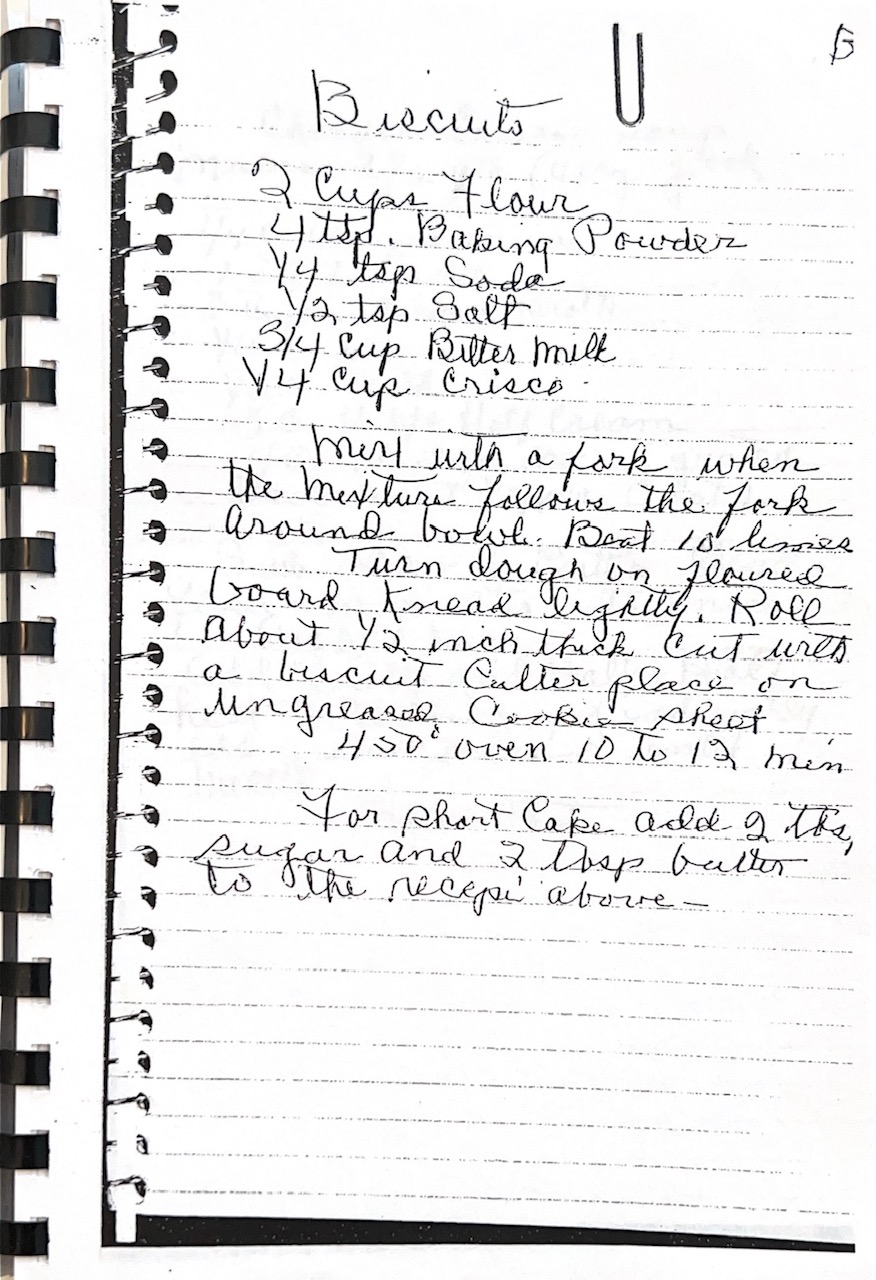 B
Biscuits
2 Cups Flour
4 tsp. Baking Powder
1/4 tsp Soda
1/2 tsp Salt
3/4 Cup Bitter Milk
1/4 Cup Crisco
Mix with a fork when
the mixture follows the fork
around bowl. Beat 10 times
Turn dough on floured
board Knead lightly. Roll
About 1/2 inch thick Cut with
a biscuit Cutter place on
Ungreased Cookie sheet
450° oven 10 to 12 min
For short Cake add 2 tbs,
sugar and 2 tbsp butter
to the recepi above —